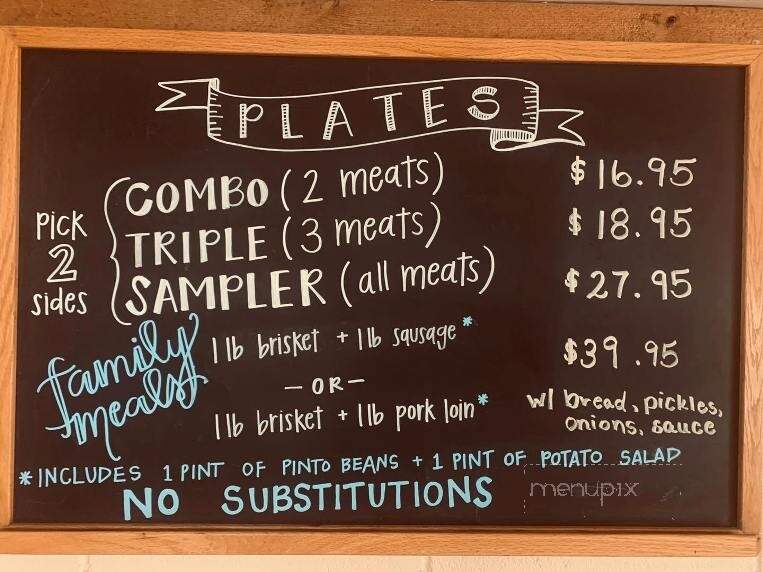 PLATES
COMBO (2 meats) $16.95
pick 2 sides TRIPLE (3 meats) $18.95
SAMPLER (all meats) $27.95
family meals 1 lb brisket + 1 lb sausage* $39.95
— OR —
1 lb brisket + 1 lb pork loin* w/ bread, pickles, onions, sauce
*INCLUDES 1 PINT OF PINTO BEANS + 1 PINT OF POTATO SALAD
NO SUBSTITUTIONS
menupix